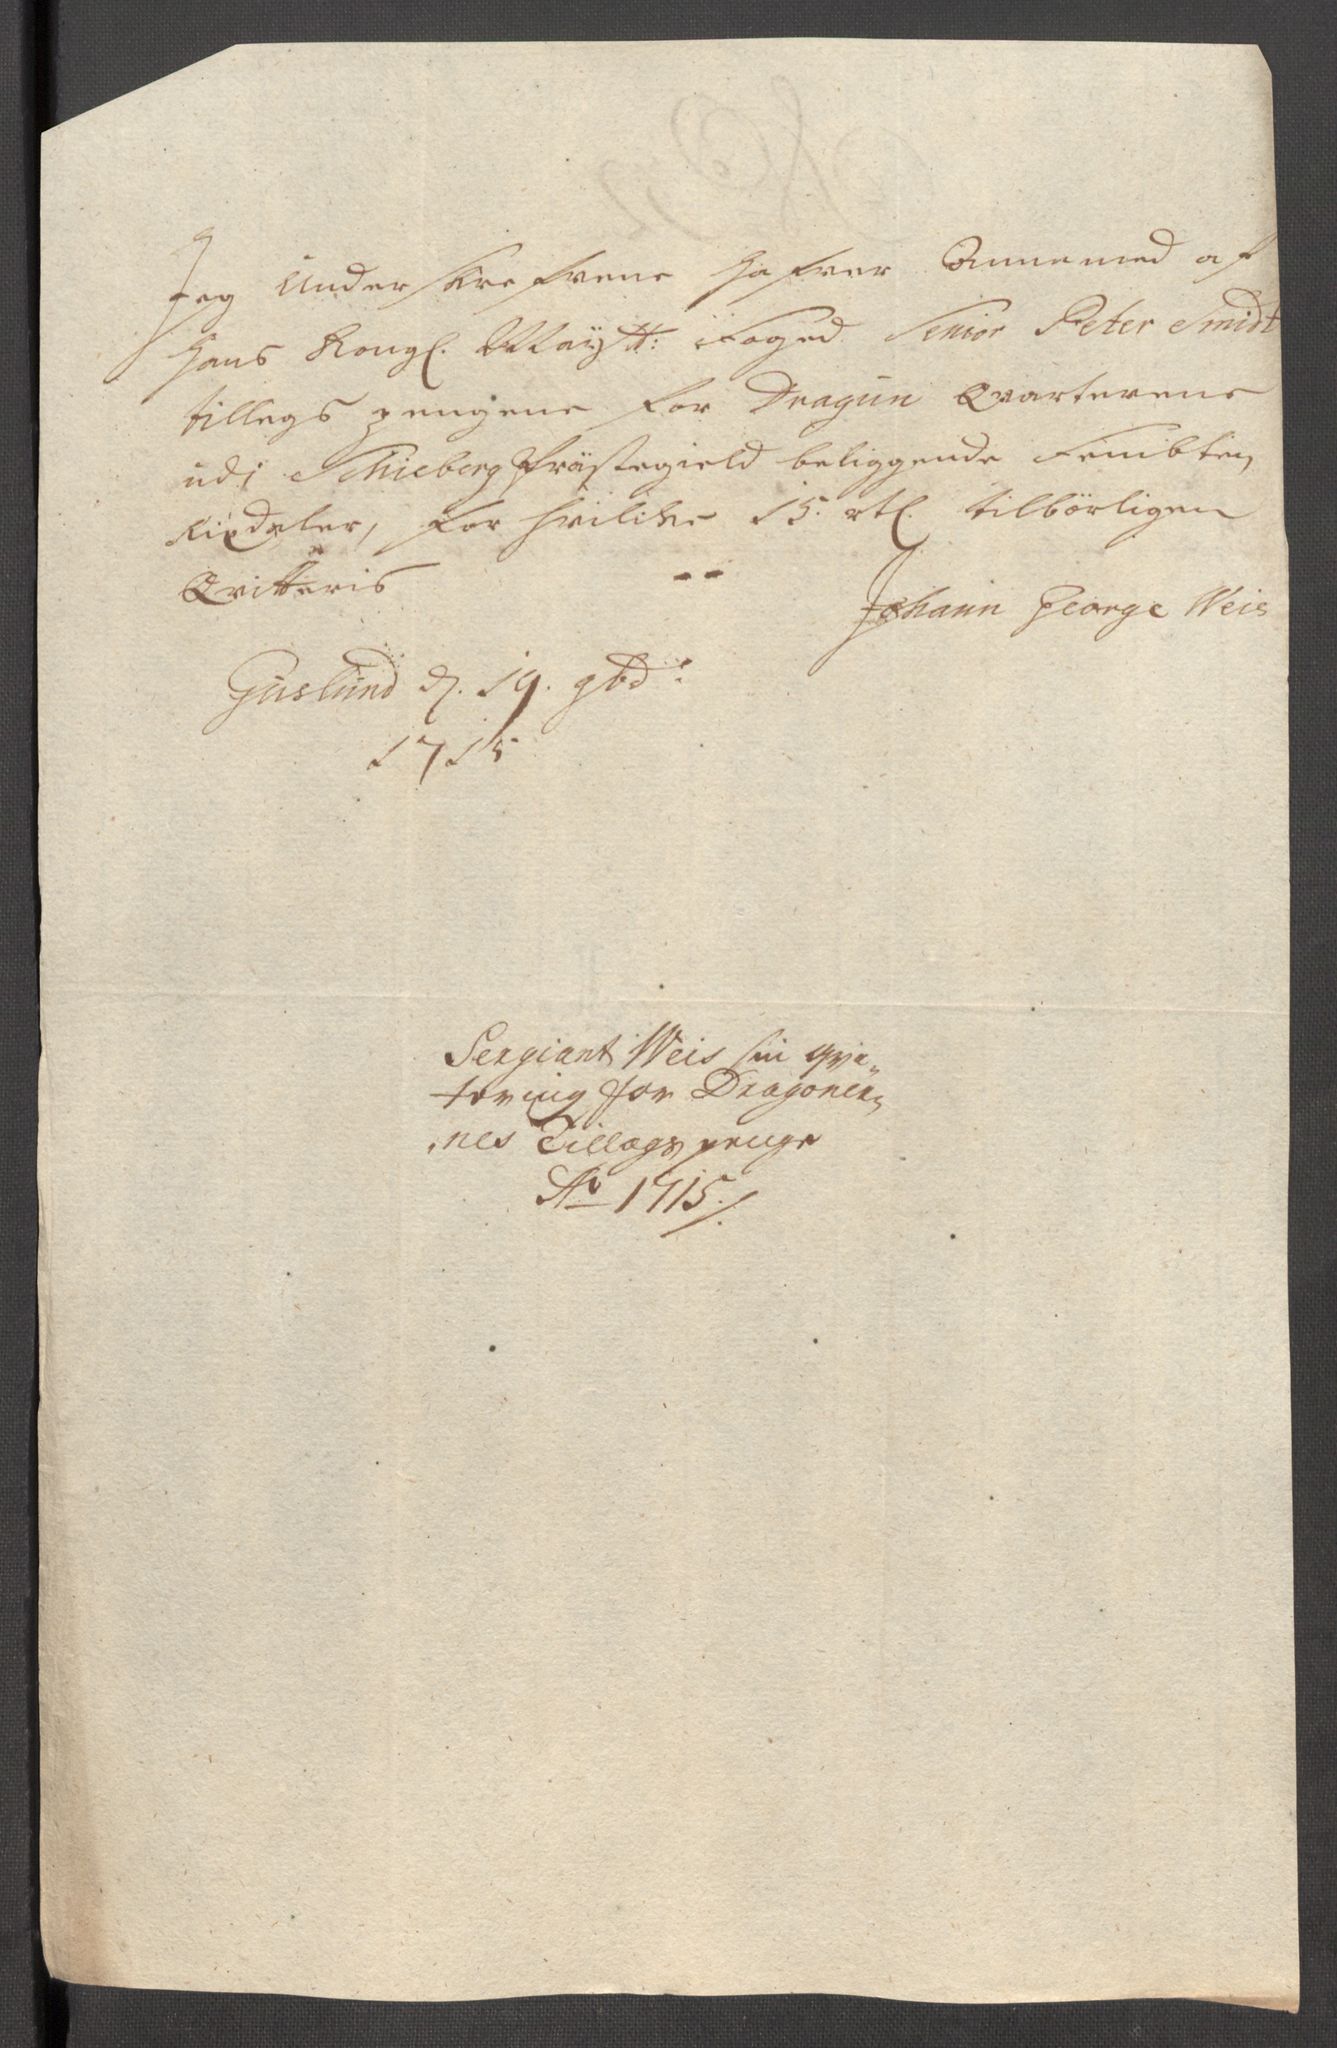 Jeg Underskrefvene hafver Annamed af
hans Kongl. Maÿtt: Foged Senior Peter Smidt
tillegs pengene for Dragun Qvarterene
udi Schieberg Prästegield beliggende Fembten
Rixdaler, for hvilcke 15. rtl. tilbörligen
Qvitteris
Johann George Weis
Guslund d. 19. 9bd:
1715
Sergiant Weis sin qvi„
tering for Dragoner„
„nes Tillegs penge
Ao 1715./.